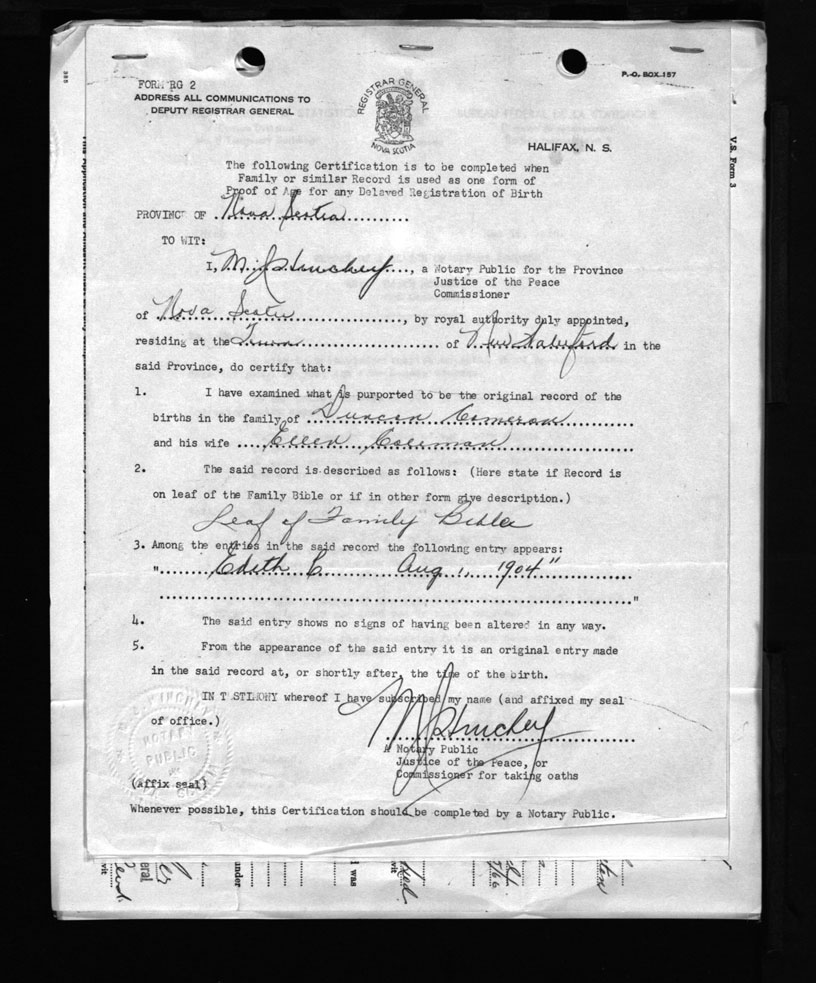 385
FORM RG 2
ADDRESS ALL COMMUNICATIONS TO
DEPUTY REGISTRAR GENERAL
REGISTRAR GENERAL
NOVA SCOTIA
P. O. BOX 157
HALIFAX, N. S.
V.S. Form 3
The following Certification is to be completed when
Family or similar Record is used as one form of
Proof of Age for any Delayed Registration of Birth
PROVINCE OF Nova Scotia
TO WIT:
I, M. J. Hinchey, a Notary Public for the Province
Justice of the Peace
Commissioner
of Nova Scotia, by royal authority duly appointed,
residing at the Town of New Waterford in the
said Province, do certify that:
1. I have examined what is purported to be the original record of the
births in the family of Duncan Cameron
and his wife Ellen Coleman
2. The said record is described as follows: (Here state if Record is
on leaf of the Family Bible or if in other form give description.)
Leaf of Family Bible
3. Among the entries in the said record the following entry appears:
" Edith C Aug 1, 1904"
"
4. The said entry shows no signs of having been altered in any way.
5. From the appearance of the said entry it is an original entry made
in the said record at, or shortly after, the time of the birth.
IN TESTIMONY whereof I have subscribed my name (and affixed my seal
of office.)
M J Hinchey
A Notary Public
Justice of the Peace, or
Commissioner for taking oaths
NOTARY
PUBLIC
(Affix seal)
Whenever possible, this Certification should be completed by a Notary Public.
eral
vit
under
I was
vit